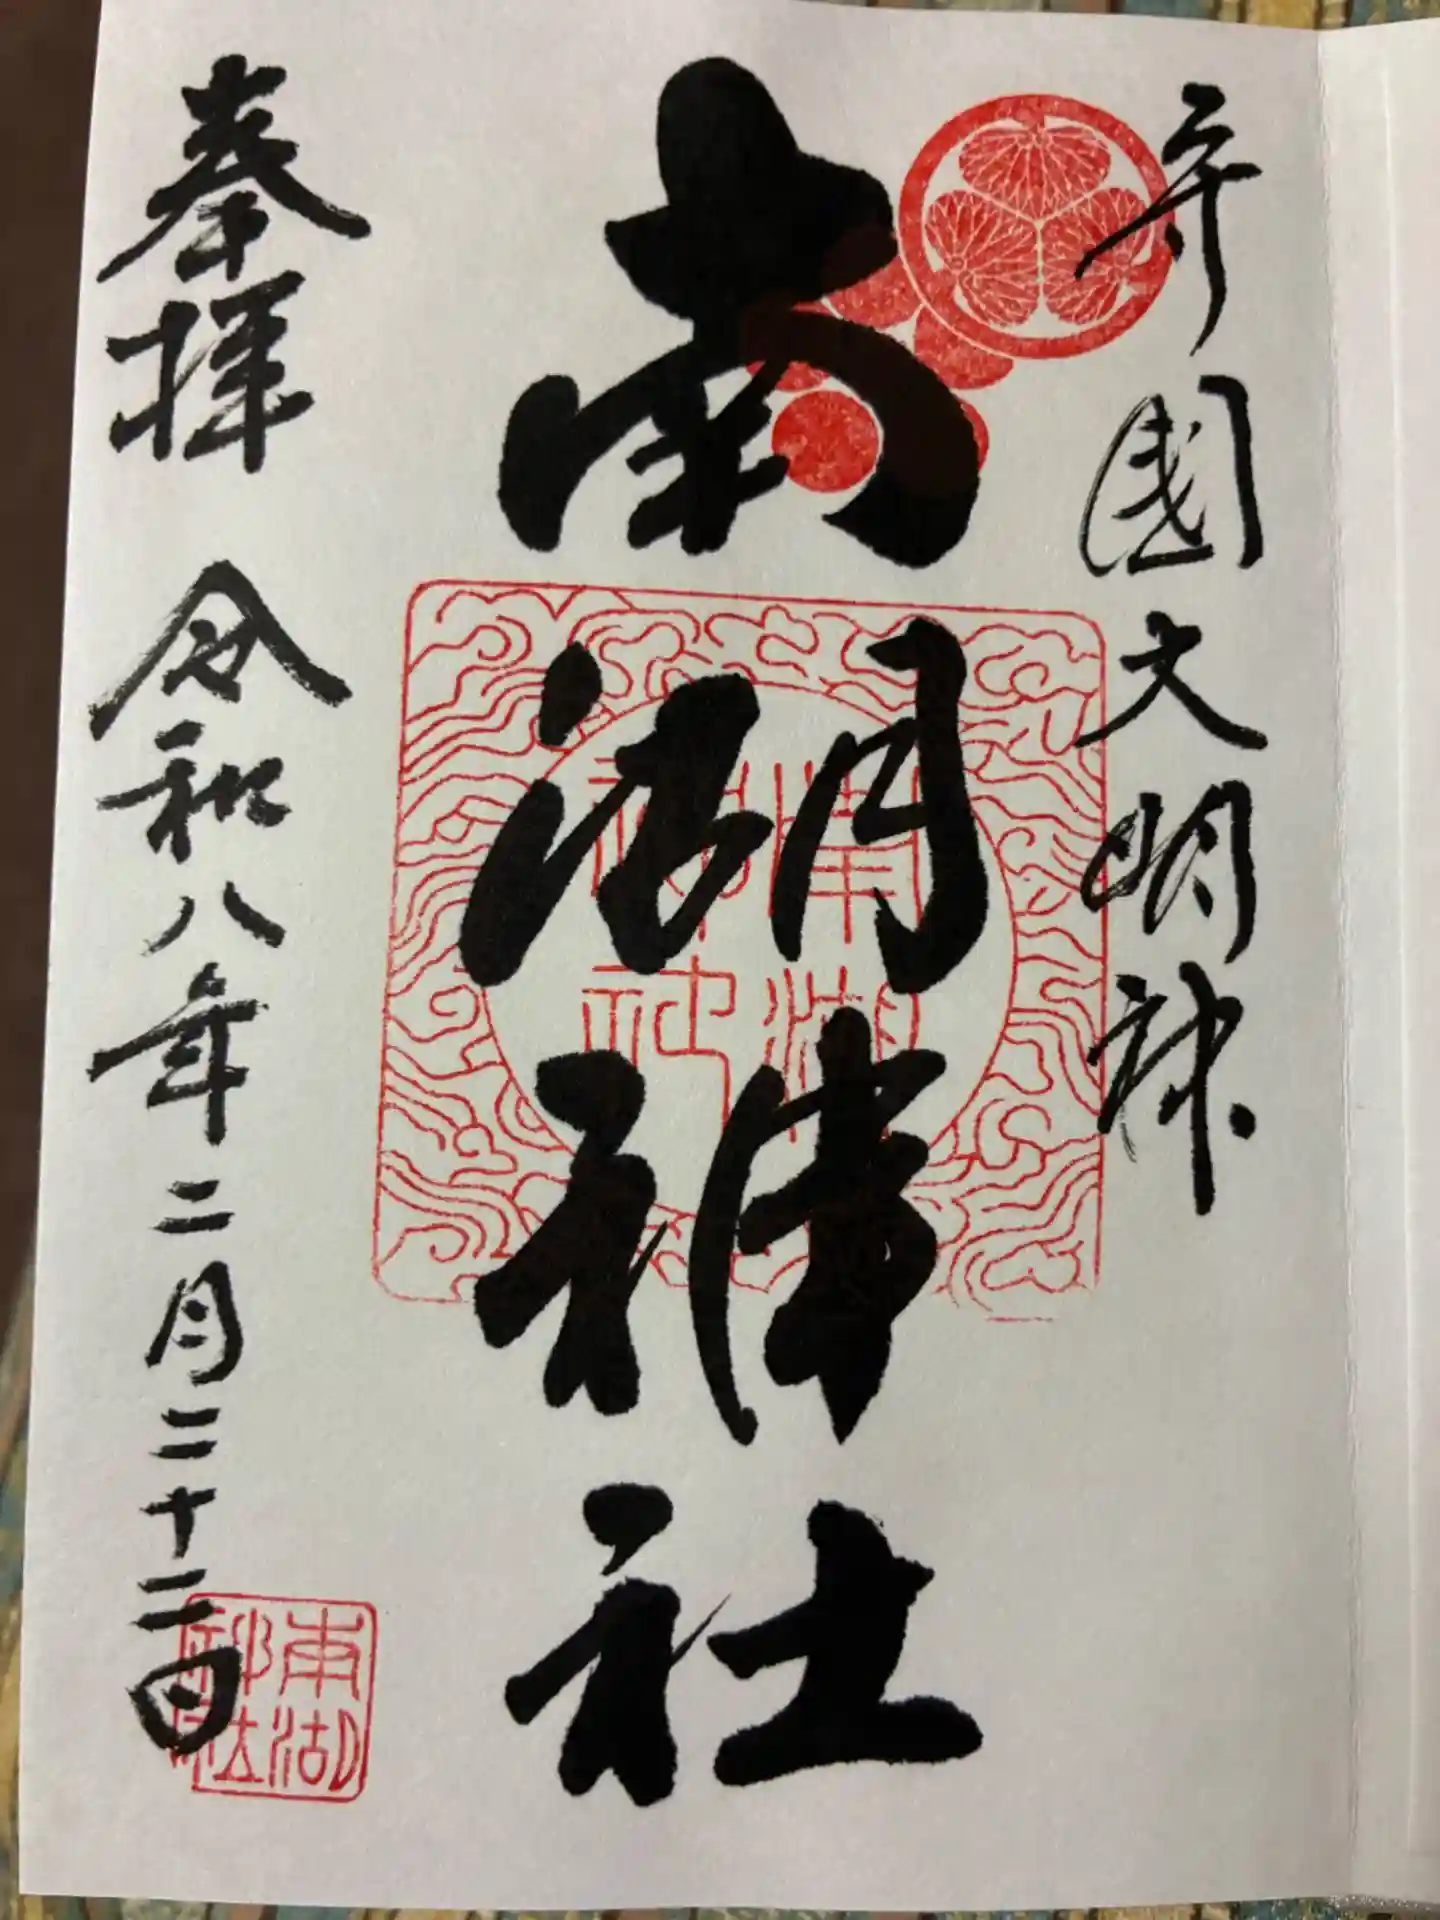 守國大明神
南湖神社
奉拝 令和八年二月二十二日
南湖神社
南湖神社